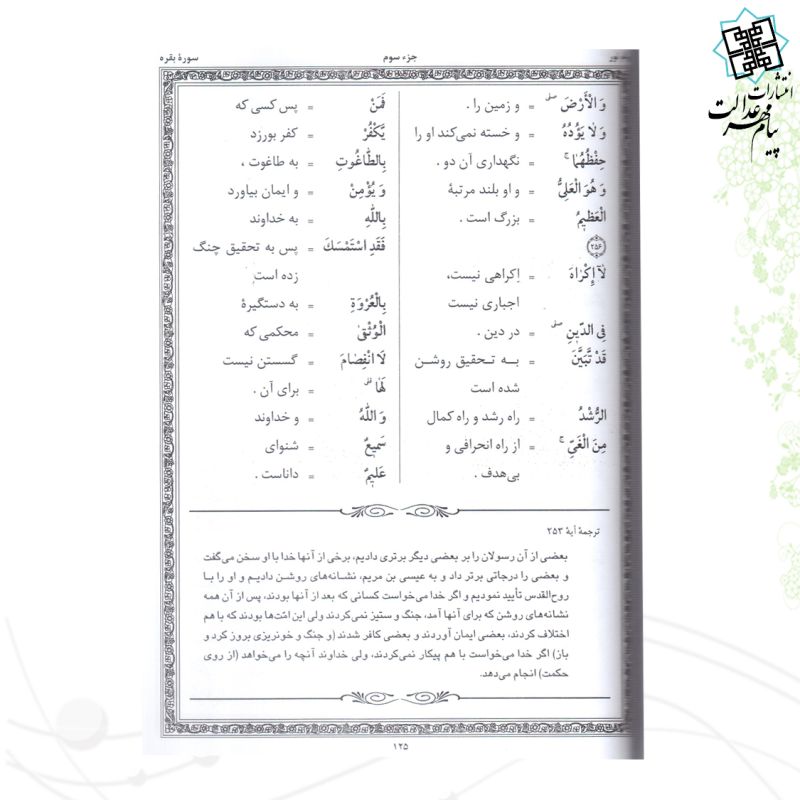 انتشارات
پیام مهر عدالت
نور
جزء سوم
سورهٔ بقره
وَ الْأَرْضَ صلی = و زمین را .
وَ لَا يَؤُدُهُ = و خسته نمی‌کند او را
حِفْظُهُمَا ج = نگهداری آن دو .
وَ هُوَ الْعَلِيُّ = و او بلند مرتبهٔ
الْعَظِيمُ = بزرگ است .
۲۵۶
لَآ إِكْرَاهَ = اِکراهی نیست،
اجباری نیست
فِي الدِّينِ صلی = در دین .
قَدْ تَّبَيَّنَ = به تحقیق روشن
شده است
الرُّشْدُ = راه رشد و راه کمال
مِنَ الْغَيِّ ج = از راه انحرافی و
بی‌هدف .
فَمَنْ = پس کسی که
يَّكْفُرْ = کفر بورزد
بِالطَّاغُوتِ = به طاغوت ،
وَ يُؤْمِنْ = و ایمان بیاورد
بِاللّٰهِ = به خداوند
فَقَدِ اسْتَمْسَكَ = پس به تحقیق چنگ
زده است
بِالْعُرْوَةِ = به دستگیرهٔ
الْوُثْقىٰ = محکمی که
لَا انْفِصَامَ = گسستن نیست
لَهَا قلی = برای آن .
وَ اللّٰهُ = و خداوند
سَمِيعٌ = شنوای
عَلِيمٌ = داناست .
ترجمهٔ آیهٔ ۲۵۳
بعضی از آن رسولان را بر بعضی دیگر برتری دادیم، برخی از آنها خدا با او سخن می‌گفت
و بعضی را درجاتی برتر داد و به عیسی بن مریم، نشانه‌های روشن دادیم و او را با
روح‌القدس تأیید نمودیم و اگر خدا می‌خواست کسانی که بعد از آنها بودند، پس از آن همه
نشانه‌های روشن که برای آنها آمد، جنگ و ستیز نمی‌کردند ولی این امّت‌ها بودند که با هم
اختلاف کردند، بعضی ایمان آوردند و بعضی کافر شدند (و جنگ و خونریزی بروز کرد و
باز) اگر خدا می‌خواست با هم پیکار نمی‌کردند، ولی خداوند آنچه را می‌خواهد (از روی
حکمت) انجام می‌دهد.
۱۲۵